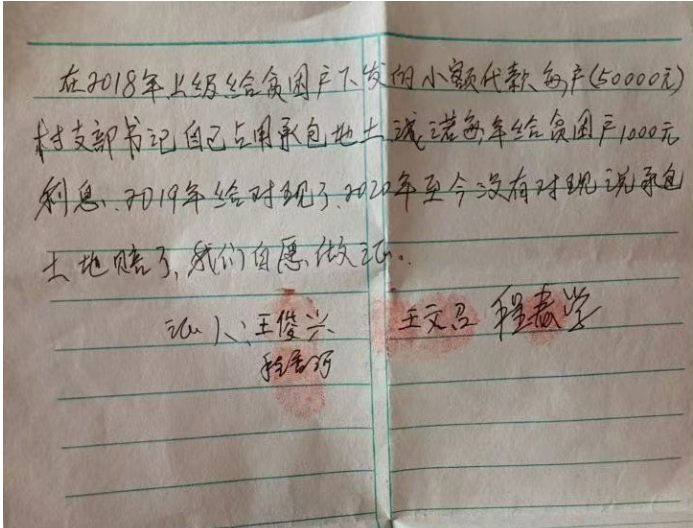 在2018年上级给贫困户下发的小额代款每户(50000元)
村支部书记自己占用承包地土诚诺每年给贫困户1000元
利息.2019年给对现了.2020年至今没有对现说承包
土地赔了,我们自愿做证.
证人:王俊兴 王文召 程春学